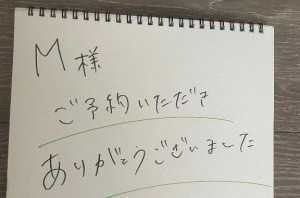 M様
ご予約いただき
ありがとうございました